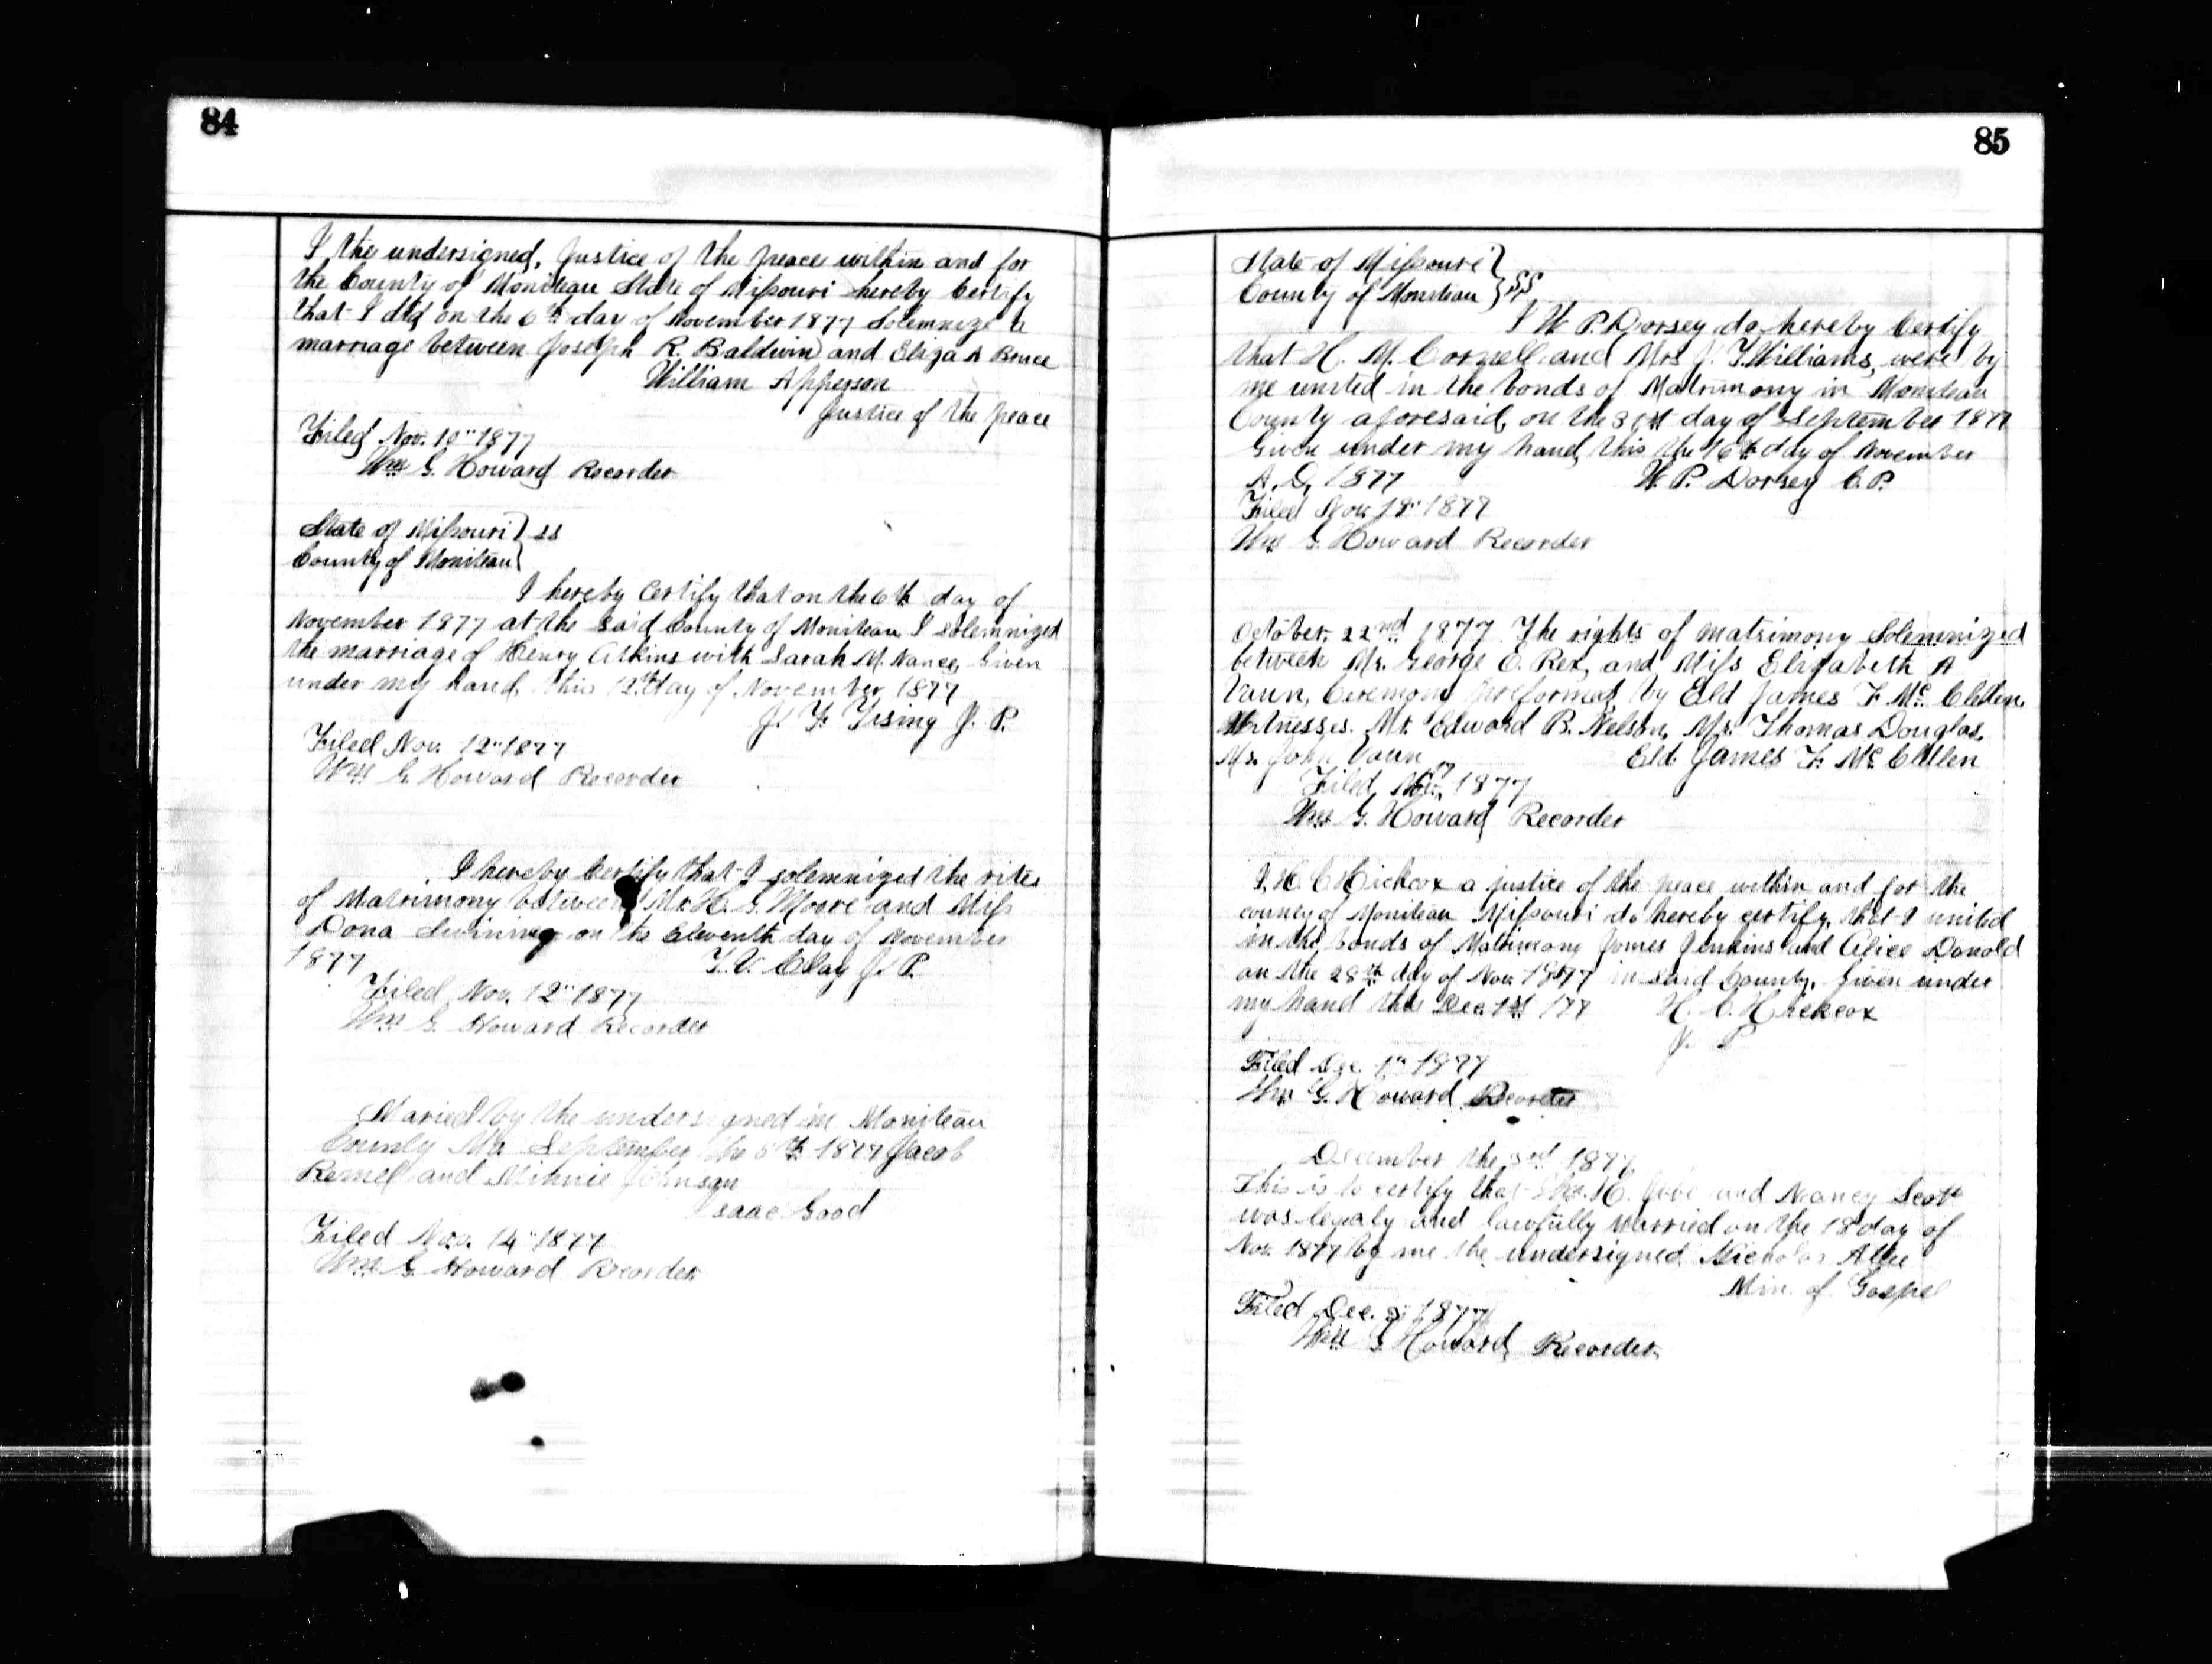 84
I the undersigned, Justice of the peace within and for
the County of Moniteau State of Missouri hereby Certify
that I did on the 6th day of November 1877 Solemnize a
marriage between Joseph R. Baldwin and Eliza A Bruce
William Apperson
Justice of the peace
Filed Nov. 10" 1877
Wm G. Howard Recorder
State of Missouri } ss
County of Moniteau }
I hereby Certify that on the 6th day of
November 1877 at the said County of Moniteau I solemnized
the marriage of Henry Atkins with Sarah M. Nance, Given
under my hand, this 12th day of November 1877
J. Y. Yising J. P.
Filed Nov. 12" 1877
Wm G. Howard Recorder
I hereby Certify that I solemnized the rites
of Matrimony between Mr. H. S. Moore and Miss
Dona on the Eleventh day of November
1877 T. V. Clay J. P.
Filed Nov. 12" 1877
Wm G. Howard Recorder
Maried by the undersigned in Moniteau
County Mo September the 5th 1877 Jacob
and Minnie Johnson
Isaac Good
Filed Nov. 14" 1877
Wm G. Howard Recorder
85
State of Missouri }
County of Moniteau } SS
I W. P. Dorsey do hereby Certify
that H. M. Cornell and Mrs J. T. Williams, were by
me united in the bonds of Matrimony in Moniteau
County aforesaid, on the 31st day of September 1877
Given under my hand, this the 16th day of November
A. D, 1877 W. P. Dorsey C. P.
Filed Nov. 18" 1877
Wm G. Howard Recorder
October, 22nd 1877. The rights of matrimony Solemnized
between Mr. George C. Rex, and Miss Elizabeth A
Vaun, Ceremony preformed, by Eld James F. Mc Clellen,
Witnesses. Mr. Edward B. Nelson, Mr. Thomas Douglas,
Mr. John Vaun Eld James F. Mc Clellen
Filed, Nov. 17 1877
Wm G. Howard, Recorder
I, H. C. Hickcox a justice of the peace within and for the
county of Moniteau Missouri do hereby certify, that I united
in the bonds of Matrimony James Jenkins and Alice Donald
on the 28th day of Nov. 1877 in said County. Given under
my hand this Dec. 1st 1877 H. C. Hickcox
J. P
Filed Dec. 1" 1877
Wm G. Howard Recorder
December the 3rd 1877
This is to certify that H. Jobe and Nancy Scott
was legaly and lawfully Married on the 18 day of
Nov. 1877 by me the undersigned Nicholas Allee
Min. of Gospel
Filed Dec. 3" 1877
Wm G. Howard, Recorder